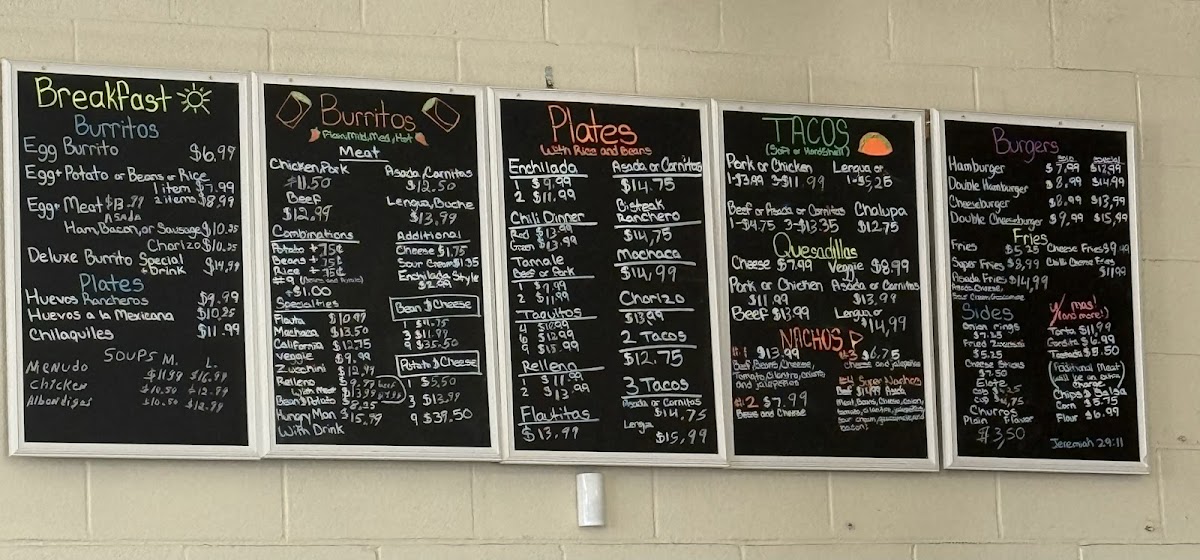 Breakfast
Burritos
Egg Burrito $6.99
Egg + Potato or Beans or Rice
1 item $7.99
2 items $8.99
Egg + Meat $13.99
Asada
Ham, Bacon, or Sausage $10.25
Chorizo $10.25
Deluxe Burrito Special + Drink $14.99
Plates
Huevos Rancheros $9.99
Huevos a la Mexicana $10.25
Chilaquiles $11.99
Soups M. L.
Menudo $11.99 $16.99
Chicken $10.50 $12.99
Albondigas $10.50 $12.99
Burritos
Flavor, Mild, Med, Hot
Meat
Chicken, Pork
$11.50
Beef
$12.99
Asada, Carnitas
$12.50
Lengua, Buche
$13.99
Combinations
Potato + 75¢
Beans + 75¢
Rice + 75¢
#9
+ $1.00
Additional
Cheese $1.75
Sour Cream $1.35
Enchilada Style
$2.99
Specialties
Flauta $10.99
Machaca $13.50
California $12.75
Veggie $9.99
Zucchini $12.99
Relleno $9.99
With Meat $13.99
Bean & Potato $8.25
Hungry Man $15.99
With Drink
Bean & Cheese
1 $4.75
3 $11.99
9 $35.50
Potato & Cheese
1 $5.50
3 $13.99
9 $39.50
Plates
With Rice and Beans
Enchilada
1 $9.99
2 $11.99
Chili Dinner
Red $13.99
Green $13.99
Tamale
Beef or Pork
1 $9.99
2 $11.99
Taquitos
4 $10.99
6 $12.99
9 $15.99
Relleno
1 $11.99
2 $13.99
Flautitas
$13.99
Asada or Carnitas
$14.75
Bisteak
Ranchero
$14.75
Machaca
$14.99
Chorizo
$13.99
2 Tacos
$12.75
3 Tacos
Asada or Carnitas
$14.75
Lengua
$15.99
TACOS
(Soft or Hardshell)
Pork or Chicken
1-$3.99 3-$11.99
Lengua or
1-$5.25
Beef or Asada or Carnitas
1-$4.75 3-$13.35
Chalupa
$12.75
Quesadillas
Cheese $7.99 Veggie $8.99
Pork or Chicken
$11.99
Asada or Carnitas
$13.99
Beef $13.99
Lengua or
$14.99
NACHOS
#1 $13.99
Beef, Beans, Cheese,
Tomato, Cilantro, Onions
and Jalapeños
#2 $7.99
Beans and Cheese
#3 $6.75
Cheese and Jalapeños
#4 Super Nachos
Beef $14.99 Asada
Meat, Beans, Cheese, Onion,
tomato, cilantro, jalapeños
sour cream, guacamole, and
bacon!
Burgers
Solo Special
Hamburger $7.99 $12.99
Double Hamburger $8.99 $14.99
Cheeseburger $8.99 $13.99
Double Cheeseburger $9.99 $15.99
Fries
Fries $5.25 Cheese Fries $9.99
Super Fries $8.99 Chili Cheese Fries
$11.99
Asada Fries $14.99
Asada, Cheese,
Sour Cream, Guacamole
Sides
Onion rings
$7.25
Fried Zucchini
$5.25
Cheese Sticks
$7.50
Elote
Churros
Plain Flavor
$3.50
Y mas!
(and more!)
Torta $11.99
Gordita $6.99
Tostada $5.50
(Additional Meat
will be an extra
charge)
Chips
Corn $5.75
Flour $6.99
Jeremiah 29:11